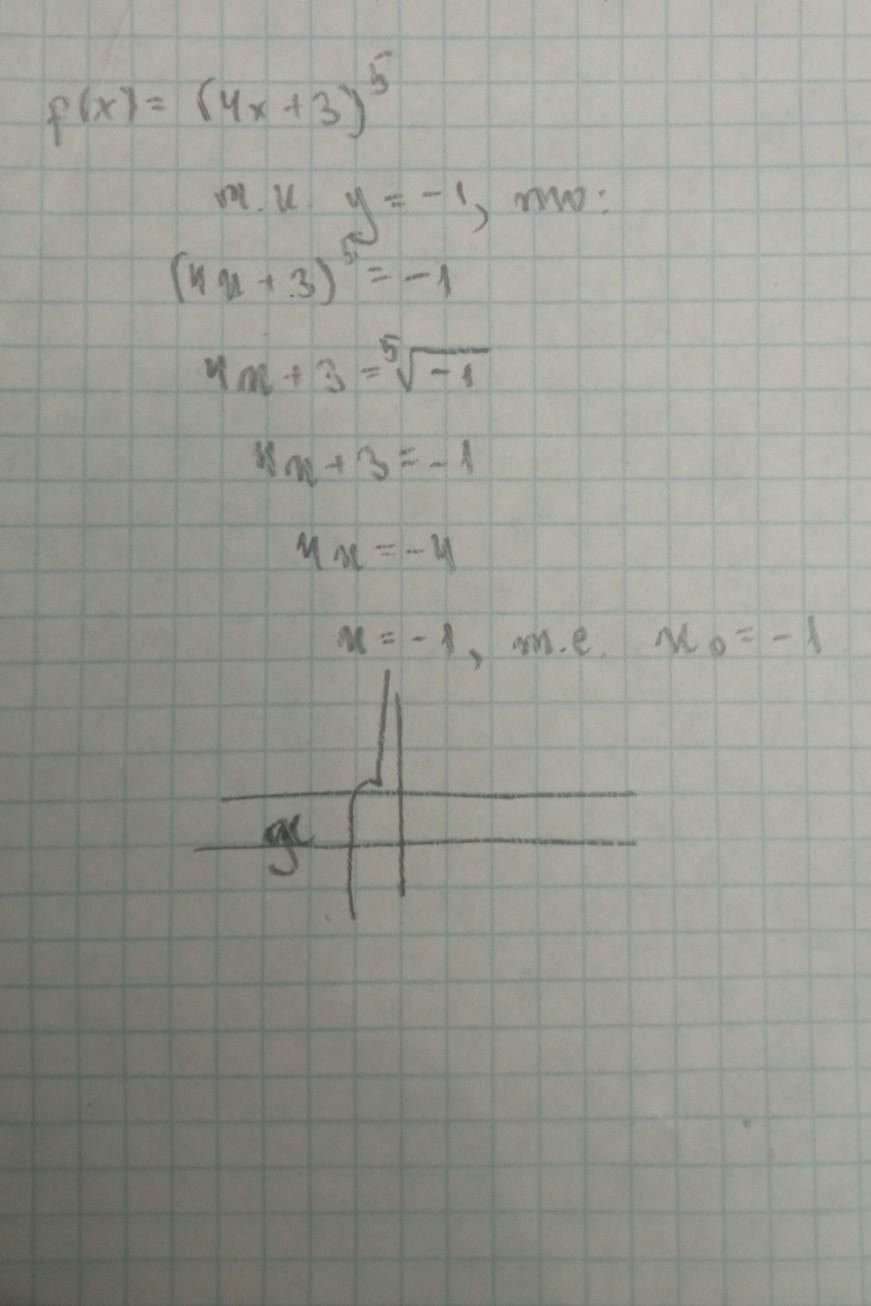 f(x) = (4x + 3)^5
т.к. y = -1, то:
(4x + 3)^5 = -1
4x + 3 = ⁵√-1
4x + 3 = -1
4x = -4
x = -1, т.е. x₀ = -1